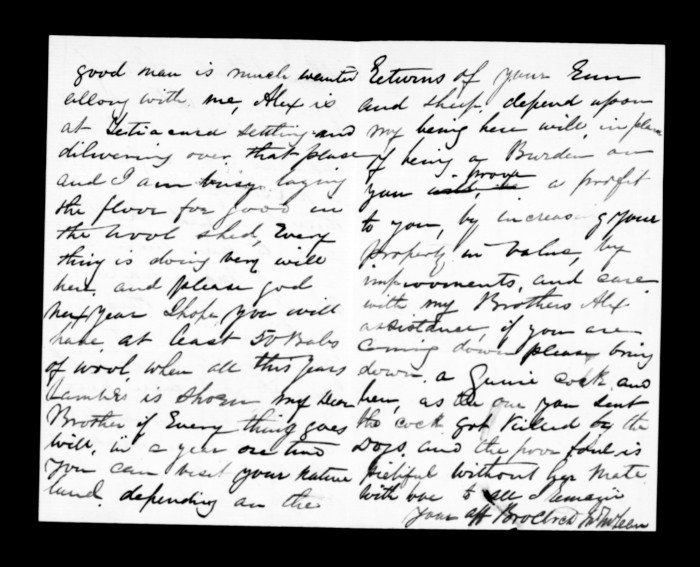 good man is much wanted
allong with me, Alex is
at settling and
dilivering over that place
and I am busy laying
the floor for good in
the wool shed, Every
thing is doing very will
here, and please god
next year I hope you will
have at least 50 Bals
of wool, when all this years
Lambes is shorn my Dear
Brother if Every thing goes
will, in a year or two
you can visit your native
land, depending on the
Returns of your Run
and sheep, depend upon
my being here will, in place
of being a Burden on
you will, be prove a profit
to you, by increasing your
property in value, by
improvements, and care
with my Brothers Alex
assistance, if you are
coming down please bring
down, a Gunie cock and
hen, as the one you sent
the cock got killed by the
Dogs, and the poor foul is
pietiful without hyr mate
with love to all I
your aff Brother McLean